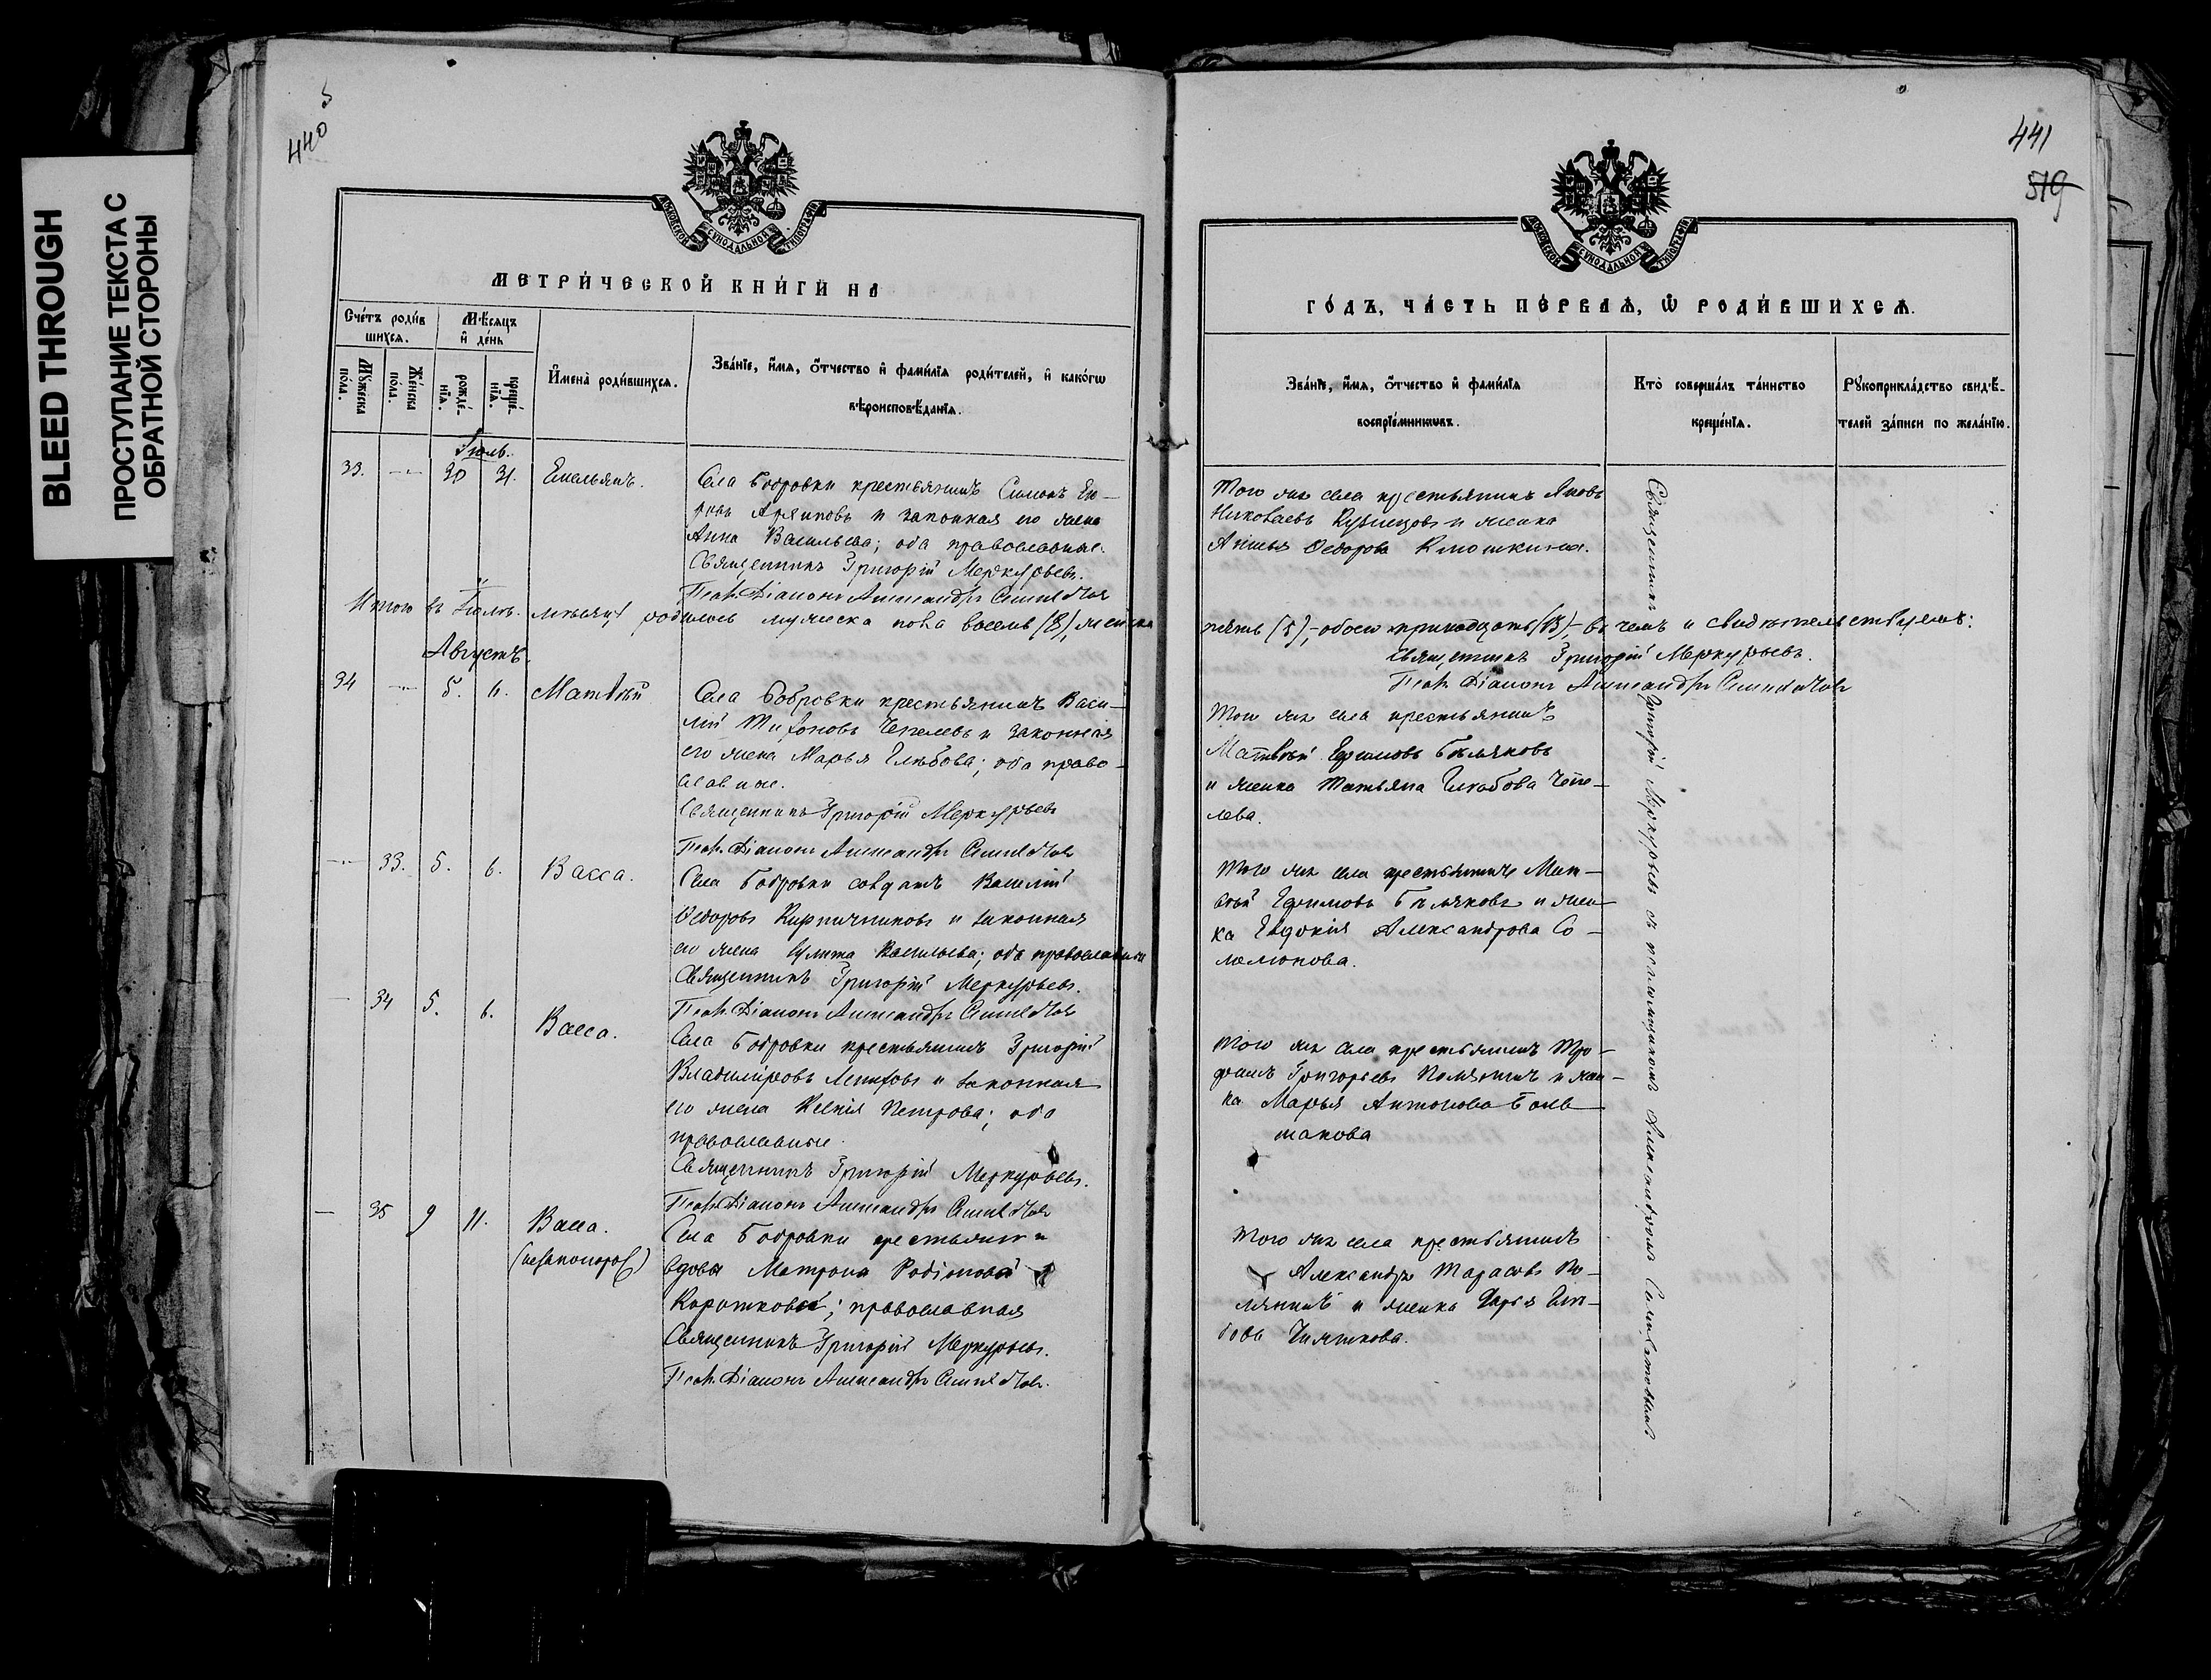 BLEED THROUGH
ПРОСТУПАНИЕ ТЕКСТА С
ОБРАТНОЙ СТОРОНЫ
440
МОСКОВСКОЙ СУНОДАЛЬНОЙ ТИПОГРАФІИ
МЕТРИ́ЧЕСКОЙ КНИ́ГИ НА
Сче́тъ роди́в
шихся.
Мѣсяцъ
и де́нь
Мꙋжеска
по́ла.
Же́нска
по́ла.
рожде́-
нїя.
креще́-
нїя.
Имена̀ роди́вшихся.
Зва́нїе, и́мя, о́тчество и фами́лїя роди́телей, и како́гѡ
вѣроисповѣ́данїя.
Іюль.
33. 30 31. Емельянъ.
Села Бобровки крестьянинъ Симонъ
и законная его жена
Анна Васильева; оба православные.
Священникъ Григорій Меркурьевъ.
Псал. Діаконъ Александръ
Итого въ Іюлѣ мѣсяцѣ родилось мужеска пола восемь (8), женска
Августъ.
34 5. 6. Матвѣй
Села Бобровки крестьянинъ Васи-
лій Тихоновъ Чепелевъ и законная
его жена Марья Глѣбова; оба право-
славные.
Священникъ Григорій Меркурьевъ
Псал. Діаконъ Александръ
33. 5. 6. Васса.
Села Бобровки солдатъ Василій
Ѳедоровъ Кирпичниковъ и законная
его жена Улита Васильева; оба православные
Священникъ Григорій Меркурьевъ.
Псал. Діаконъ Александръ
34 5. 6. Васса.
Села Бобровки крестьянинъ Григорій
Владиміровъ и законная
его жена Ксенія Петрова; оба
православные.
Священникъ Григорій Меркурьевъ.
Псал. Діаконъ Александръ
35 9 11. Васса.
(незаконорож)
Села Бобровки
вдова Матрона Родіонова
Короткова; православная
Священникъ Григорій Меркурьевъ.
Псал. Діаконъ Александръ
441
519
МОСКОВСКОЙ СУНОДАЛЬНОЙ ТИПОГРАФІИ
ГО́ДЪ, ЧА́СТЬ ПЕ́РВАЯ, Ѡ РОДИ́ВШИХСЯ.
Зва́нїе, и́мя, о́тчество и фами́лїя
воспрїе́мникѡвъ.
Кто̀ соверша́лъ та́инство
креще́нїя.
Рꙋкоприкла́дство свидѣ́-
телей за́писи по жела́нїю.
Того же села крестьянинъ Яковъ
Николаевъ Кузнецовъ и женка
Ѳедорова Клюшкина.
пять (5), обоего тринадцать (13), въ чемъ и свидѣтельствуемъ:
Священникъ Григорій Меркурьевъ.
Псал. Діаконъ Александръ
Того же села крестьянинъ
Матвѣй Ефимовъ Бѣляковъ
и женка Татьяна Глѣбова Чепе-
лева.
Того же села крестьянинъ Мат-
вѣй Ефимовъ Бѣляковъ и жен-
ка Евдокія Александрова Со-
ломонова.
Того же села крестьянинъ Тро-
фимъ Григорьевъ и жен-
ка Марья Антонова Боль-
шакова
Того же села крестьянинъ
Александръ Тарасовъ По-
и женка Дарья Глѣ-
бова
Священникъ Григорій Меркурьевъ съ псаломщикомъ Александромъ